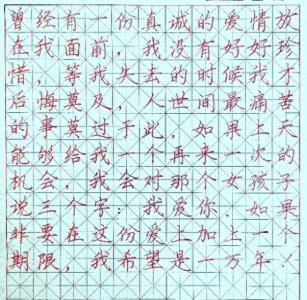 曾经有一份真诚的爱情放
在我面前，我没有好好珍
惜，等我失去的时候我才
后悔莫及，人世间最痛苦
的事莫过于此，如果上天
能够给我一个再来一次的
机会，我会对那个女孩子
说三个字：我爱你，如果
非要在这份爱上加上一个
期限，我希望是一万年！